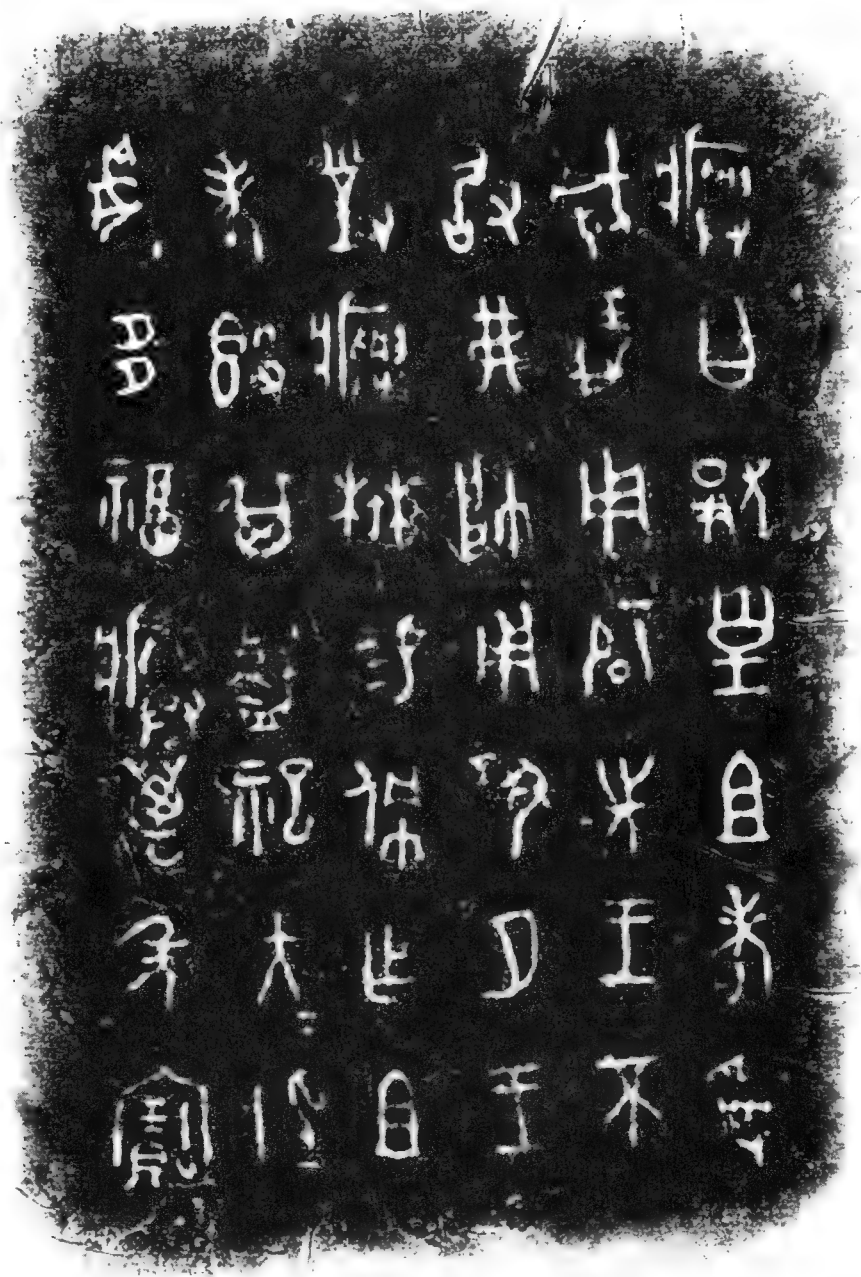 𤼈曰覭皇祖考司
威義用辟先王不
敢弗帥用夙夕王
對𤼈楙易佩乍祖
考簋其𩰫祀大=神=
妥多福𤼈萬年寶